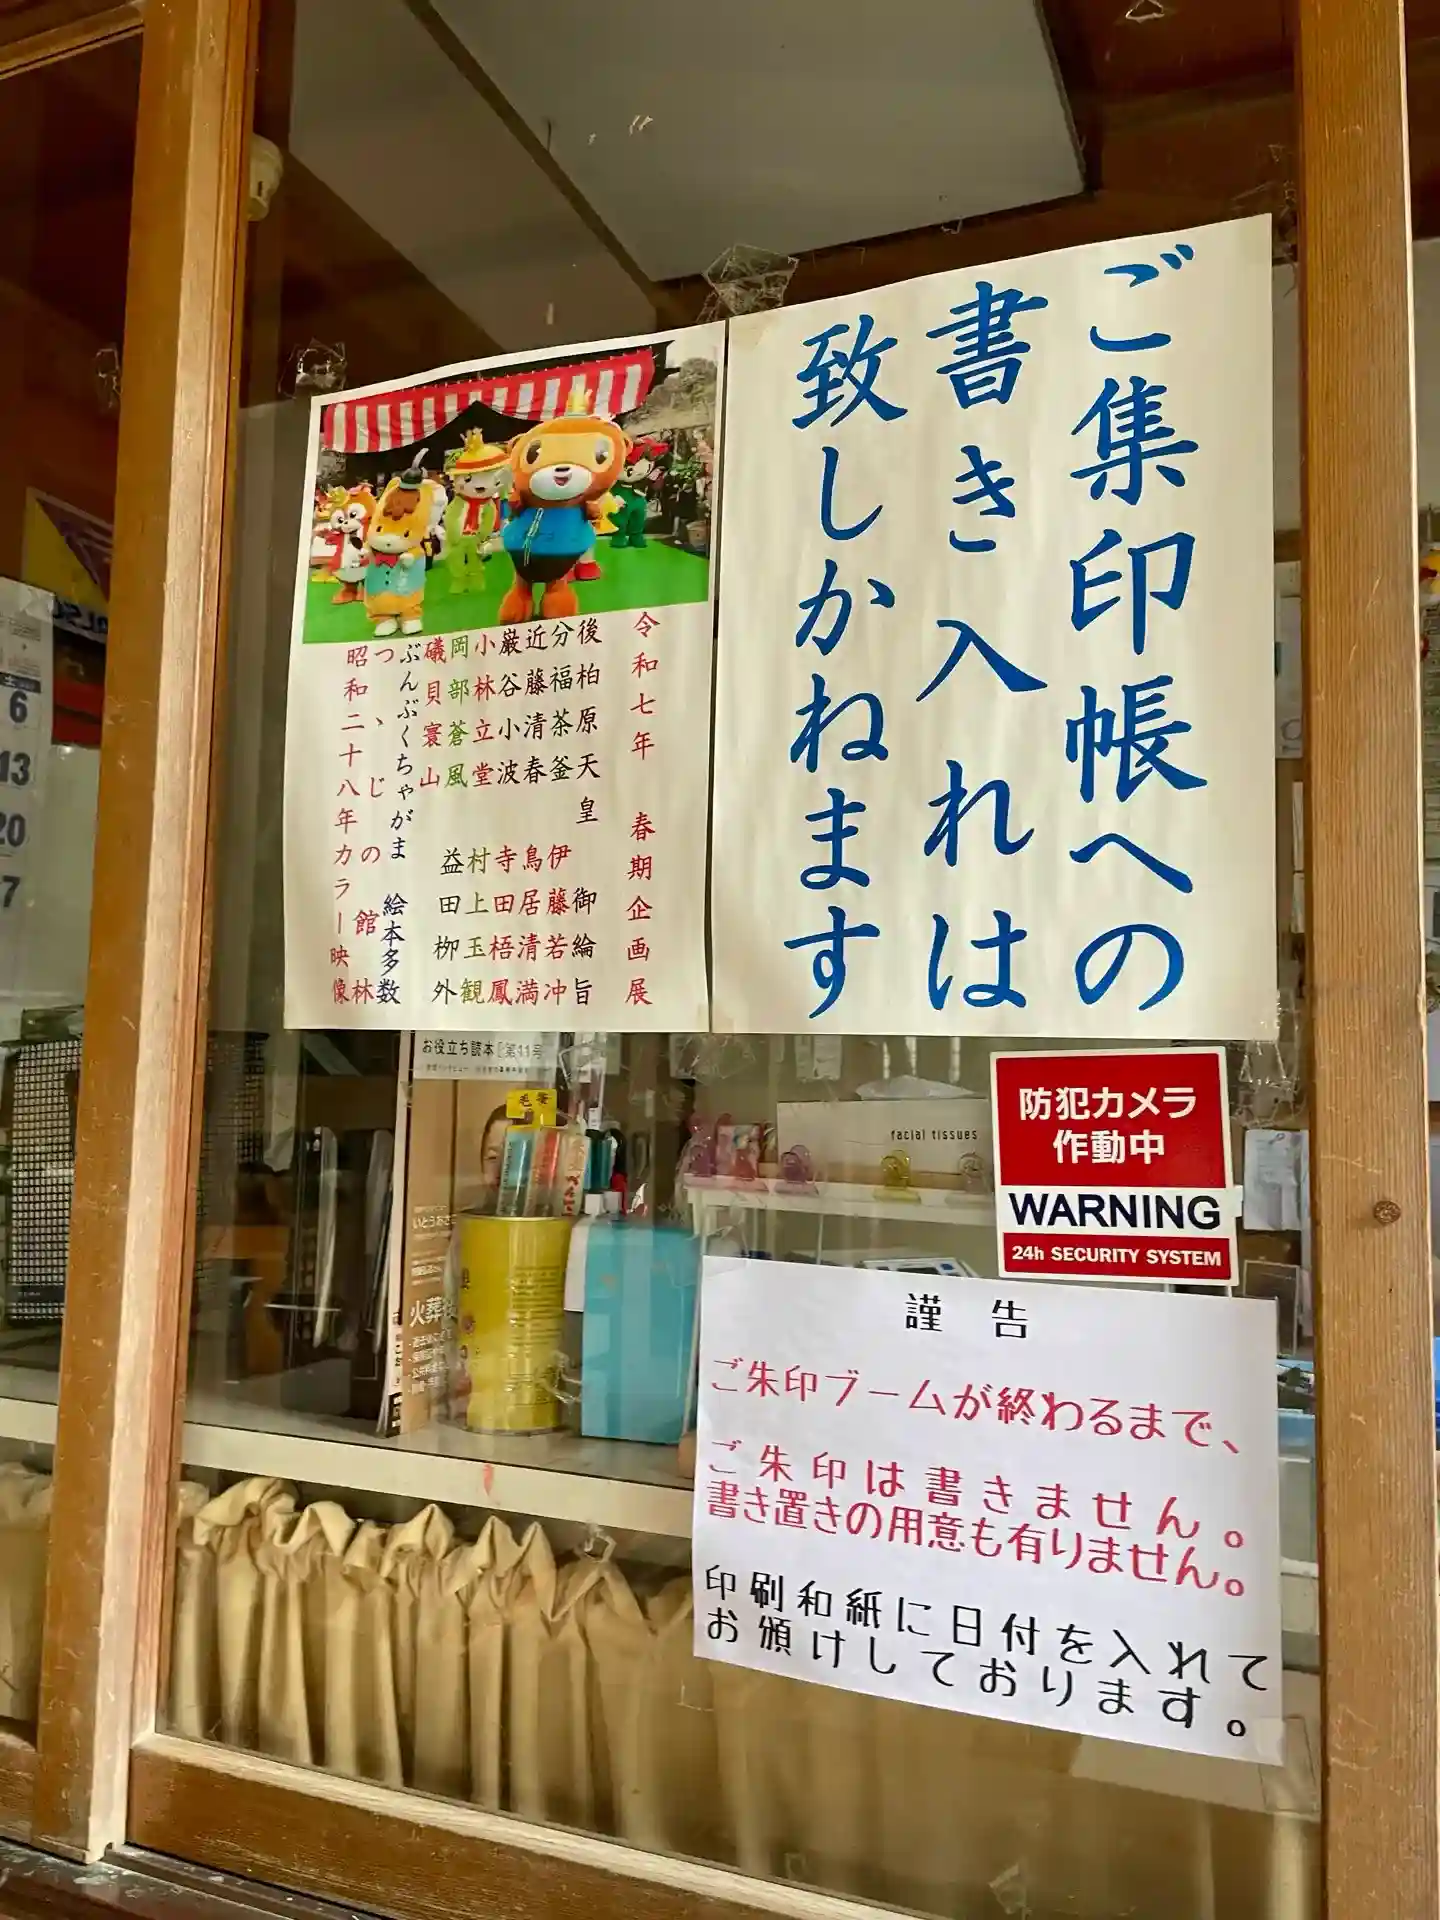 ご集印帳への
書き入れは
致しかねます
令和七年 春期企画展
後柏原天皇 御綸旨
分福茶釜 伊藤若冲
近藤清春 鳥居清満
巌谷小波 寺田梧鳳
小林立堂 村上玉観
岡部蒼風 益田柳外
磯貝寰山
ぶんぶくちゃがま 絵本多数
つゝじの館林
昭和二十八年カラー映像
防犯カメラ
作動中
WARNING
24h SECURITY SYSTEM
謹告
ご朱印ブームが終わるまで、
ご朱印は書きません。
書き置きの用意も有りません。
印刷和紙に日付を入れて
お頒けしております。
お役立ち読本 第11号
毛筆
facial tissues
火葬
6
13
20